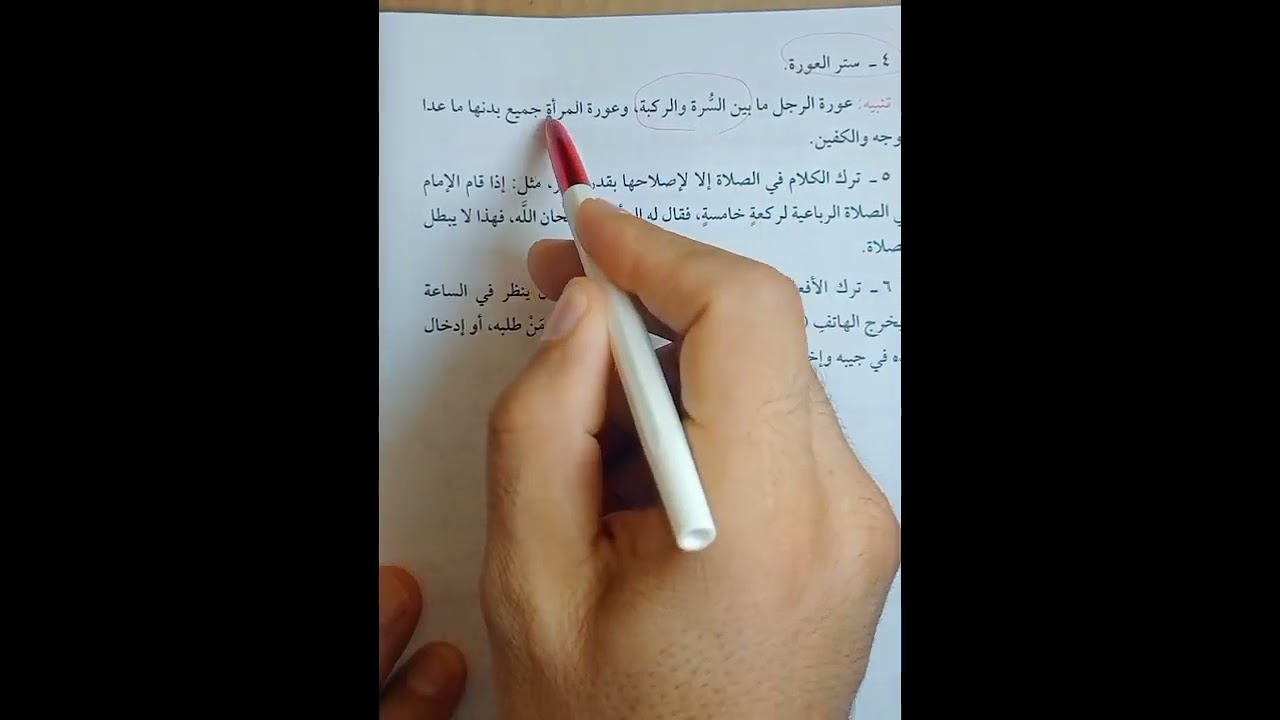 ٤ ـ ستر العورة.
تنبيه: عورة الرجل ما بين السُّرة والركبة، وعورة المرأة جميع بدنها ما عدا
وجه والكفين.
٥ ـ ترك الكلام في الصلاة إلا لإصلاحها بقدر مثل: إذا قام الإمام
ي الصلاة الرباعية لركعةٍ خامسةٍ، فقال له حان اللَّه، فهذا لا يبطل
صلاة.
٦ ـ ترك الأفع ينظر في الساعة
يخرج الهاتفِ مَنْ طلبه، أو إدخال
ه في جيبه وإخ